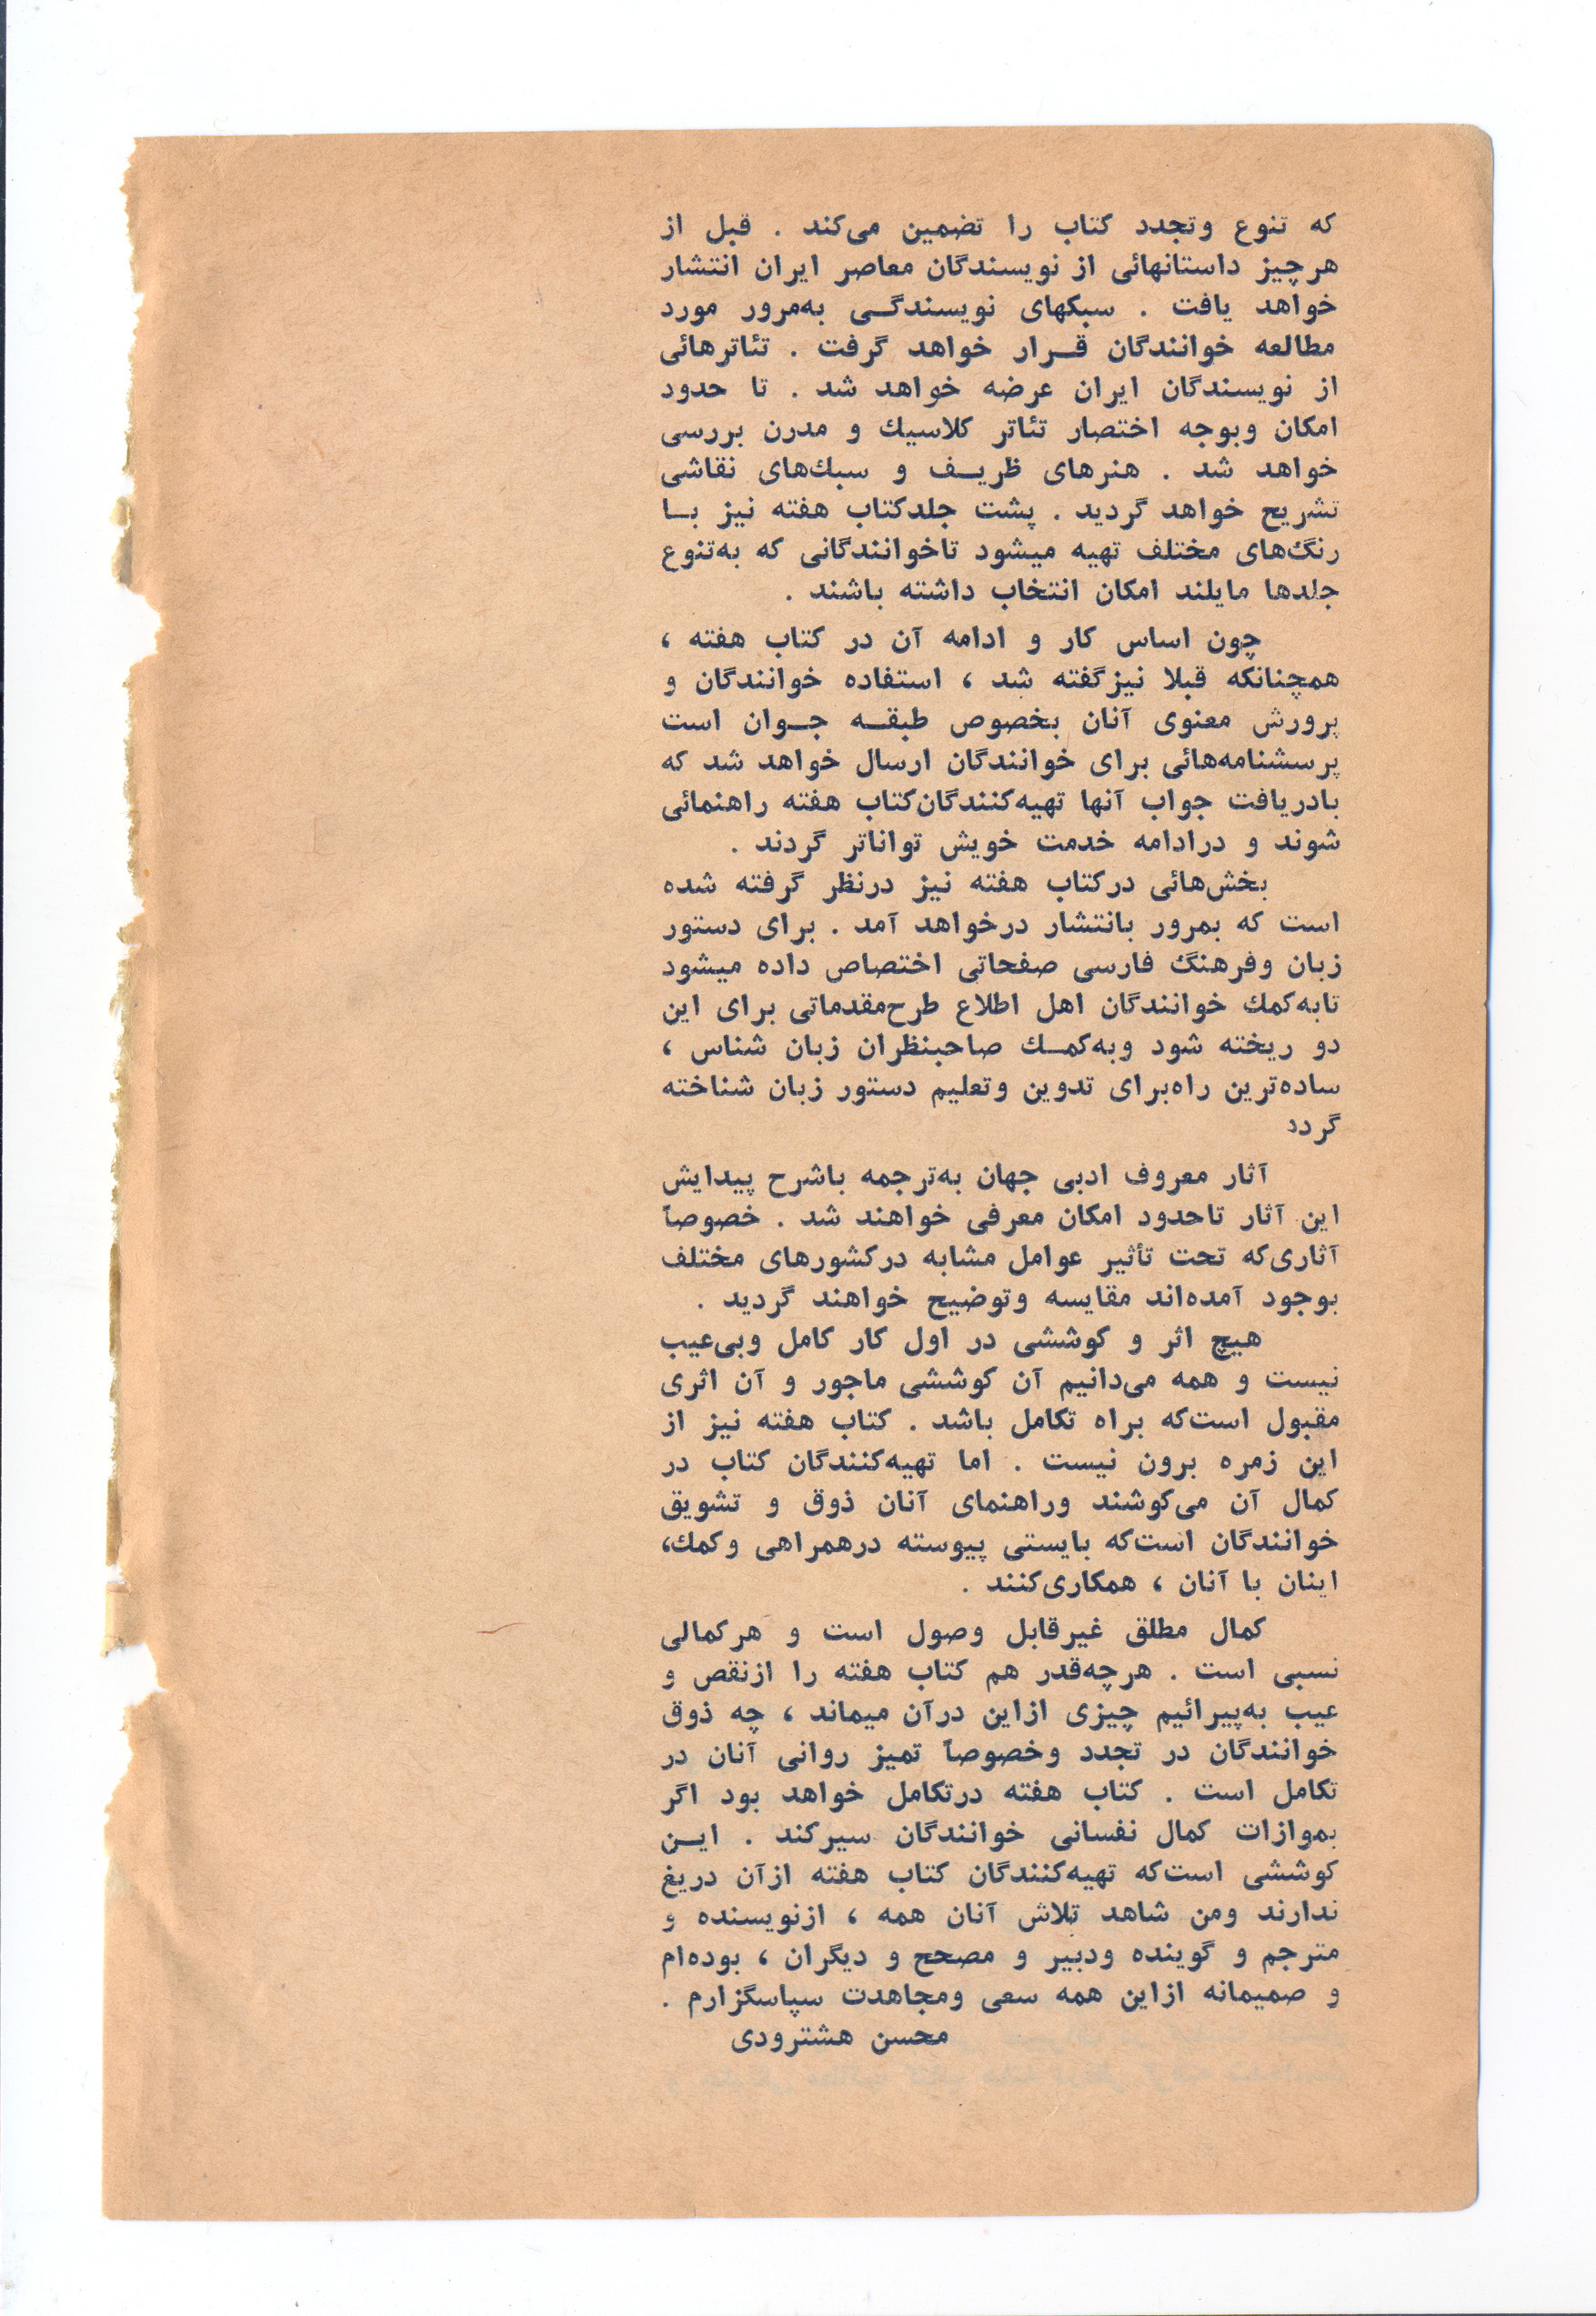 که تنوع وتجدد کتاب را تضمین می‌کند . قبل از
هرچیز داستانهائی از نویسندگان معاصر ایران انتشار
خواهد یافت . سبکهای نویسندگـی به‌مرور مورد
مطالعه خوانندگان قـرار خواهد گرفت . تئاترهائی
از نویسندگان ایران عرضه خواهد شد . تا حدود
امکان وبوجه اختصار تئاتر کلاسیك و مدرن بررسی
خواهد شد . هنرهای ظریـف و سبك‌های نقاشی
تشریح خواهد گردید . پشت جلدکتاب هفته نیز بـا
رنگ‌های مختلف تهیه میشود تاخوانندگانی که به‌تنوع
جلدها مایلند امکان انتخاب داشته باشند .
چون اساس کار و ادامه آن در کتاب هفته ،
همچنانکه قبلا نیزگفته شد ، استفاده خوانندگان و
پرورش معنوی آنان بخصوص طبقـه جـوان است
پرسشنامه‌هائی برای خوانندگان ارسال خواهد شد که
بادریافت جواب آنها تهیه‌کنندگان‌کتاب هفته راهنمائی
شوند و درادامه خدمت خویش تواناتر گردند .
بخش‌هائی درکتاب هفته نیز درنظر گرفته شده
است که بمرور بانتشار درخواهد آمد . برای دستور
زبان وفرهنگ فارسی صفحاتی اختصاص داده میشود
تابه‌کمك خوانندگان اهل اطلاع طرح‌مقدماتی برای این
دو ریخته شود وبه‌کمـك صاحبنظران زبان شناس ،
ساده‌ترین راه‌برای تدوین وتعلیم دستور زبان شناخته
گردد
آثار معروف ادبی جهان به‌ترجمه باشرح پیدایش
این آثار تاحدود امکان معرفی خواهند شد . خصوصاً
آثاری‌که تحت تأثیر عوامل مشابه درکشورهای مختلف
بوجود آمده‌اند مقایسه وتوضیح خواهند گردید .
هیچ اثر و کوششی در اول کار کامل وبی‌عیب
نیست و همه می‌دانیم آن کوششی ماجور و آن اثری
مقبول است‌که براه تکامل باشد . کتاب هفته نیز از
این زمره برون نیست . اما تهیه‌کنندگان کتاب در
کمال آن می‌کوشند وراهنمای آنان ذوق و تشویق
خوانندگان است‌که بایستی پیوسته درهمراهی وکمك،
اینان با آنان ، همکاری‌کنند .
کمال مطلق غیرقابل وصول است و هرکمالی
نسبی است . هرچه‌قدر هم کتاب هفته را ازنقص و
عیب به‌پیرائیم چیزی ازاین درآن میماند ، چه ذوق
خوانندگان در تجدد وخصوصاً تمیز روانی آنان در
تکامل است . کتاب هفته درتکامل خواهد بود اگر
بموازات کمال نفسانی خوانندگان سیرکند . ایـن
کوششی است‌که تهیه‌کنندگان کتاب هفته ازآن دریغ
ندارند ومن شاهد تلاش آنان همه ، ازنویسنده و
مترجم و گوینده ودبیر و مصحح و دیگران ، بوده‌ام
و صمیمانه ازاین همه سعی ومجاهدت سپاسگزارم .
محسن هشترودی